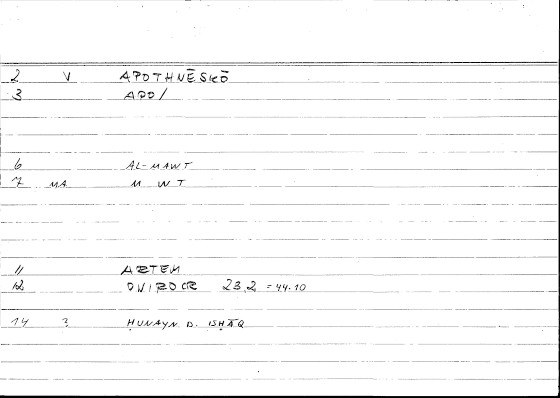 2 V APOTHNĒSKŌ
3 APO/
6 AL-MAWT
7 MA M W T
11 ARTEM
12 ONIROCR 23,2 = 44.10
14 ? ḤUNAYN B. ISḤĀQ